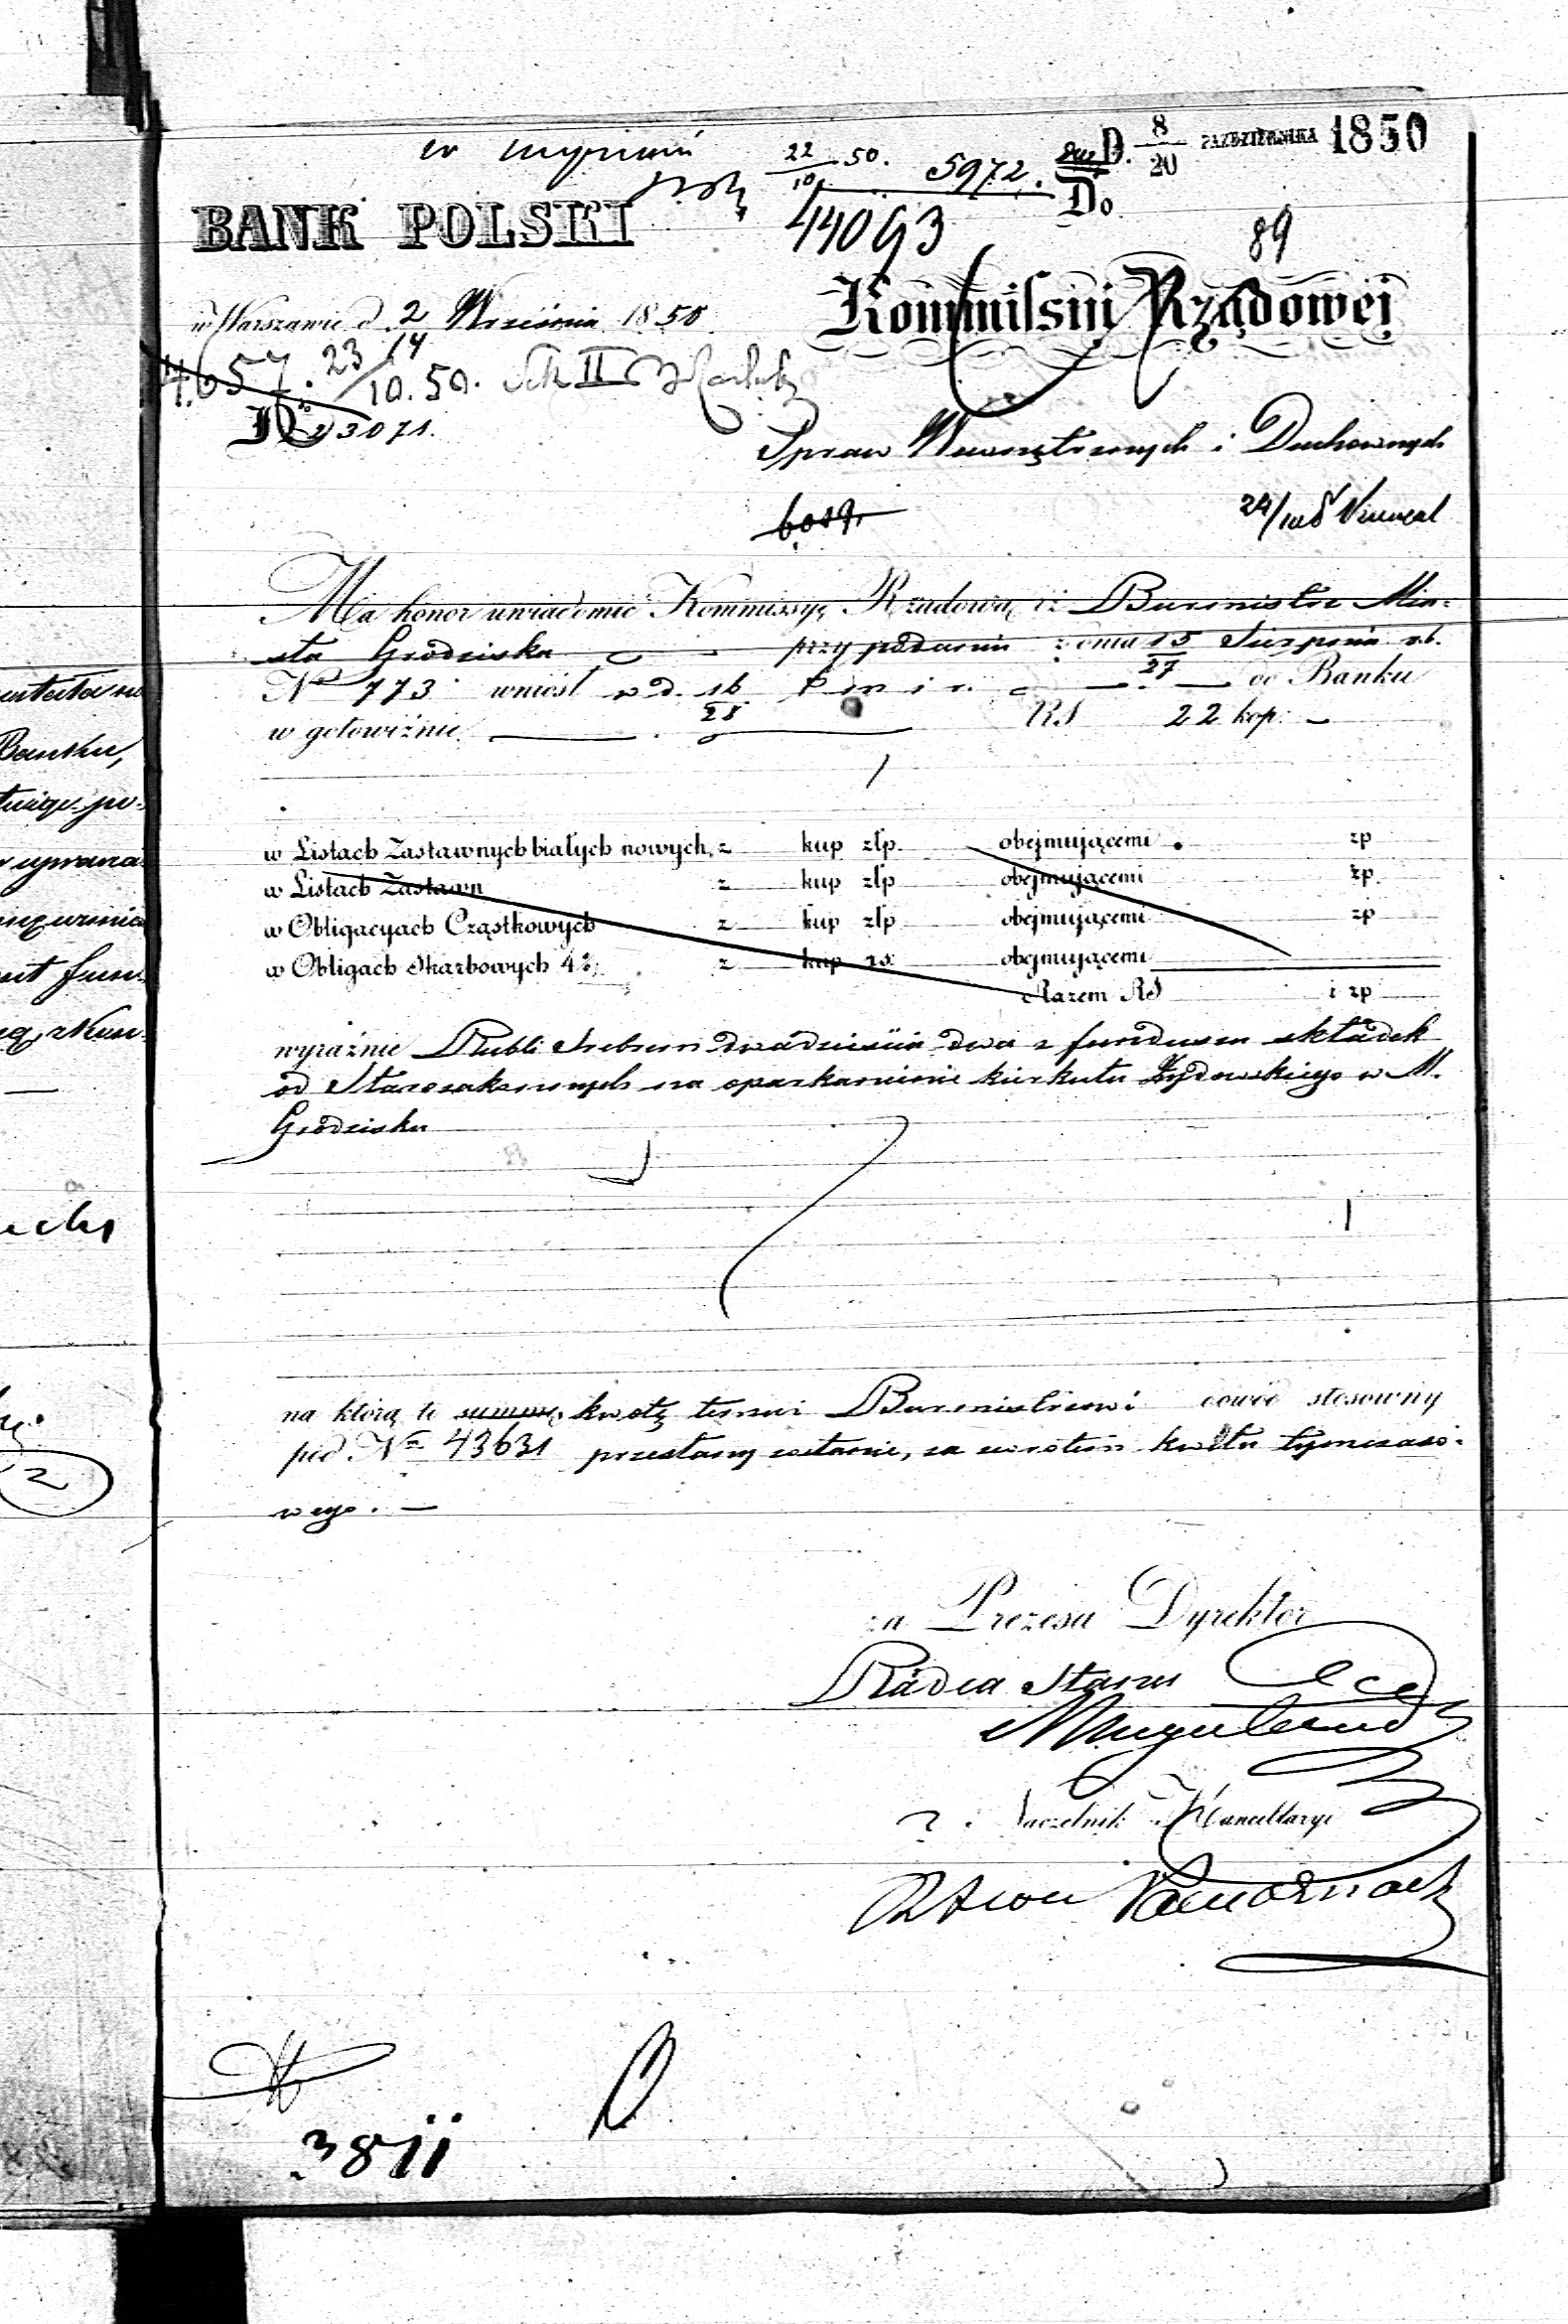 D. 8/20 PAŹDZIERNIKA 1850
22/10 50. 5972.
Do
BANK POLSKI
44093
89
w Warszawie d. 2/14 Września 1850
Kommissyi Rządowej
4657. 23/10. 50. II
No 23071.
Spraw Wewnętrznych i Duchownych
24/10
Ma honor uwiadomić Kommissyę Rządową iż Burmistrz Mia-
sta Grodziska przy podaniu z dnia 15/27 Sierpnia r.b.
No 773 wniósł w d. 16/28 t. m i r. do Banku
w gotowiźnie RS 22 kop: —
w Listach Zastawnych białych nowych, z kup złp. obejmującemi zp
w Listach Zastawn z kup złp obejmującemi zp.
w Obligacyach Cząstkowych z kup złp obejmującemi zp
w Obligach Skarbowych 4% z kup rs: obejmującemi
Razem RS i zp
wyraźnie Rubli Srebrem dwadzieścia dwa z funduszu składek
od Starozakonnych na oparkanienie kirkutu Żydowskiego w M.
Grodzisku
na którą to summę kwotę temuż Burmistrzowi dowód stosowny
pod No 43631 przesłany zostanie, za zwrotem kwitu tymczaso-
wego. —
za Prezesa Dyrektor
Radca Stanu
Naczelnik Kancellaryi
3811
2